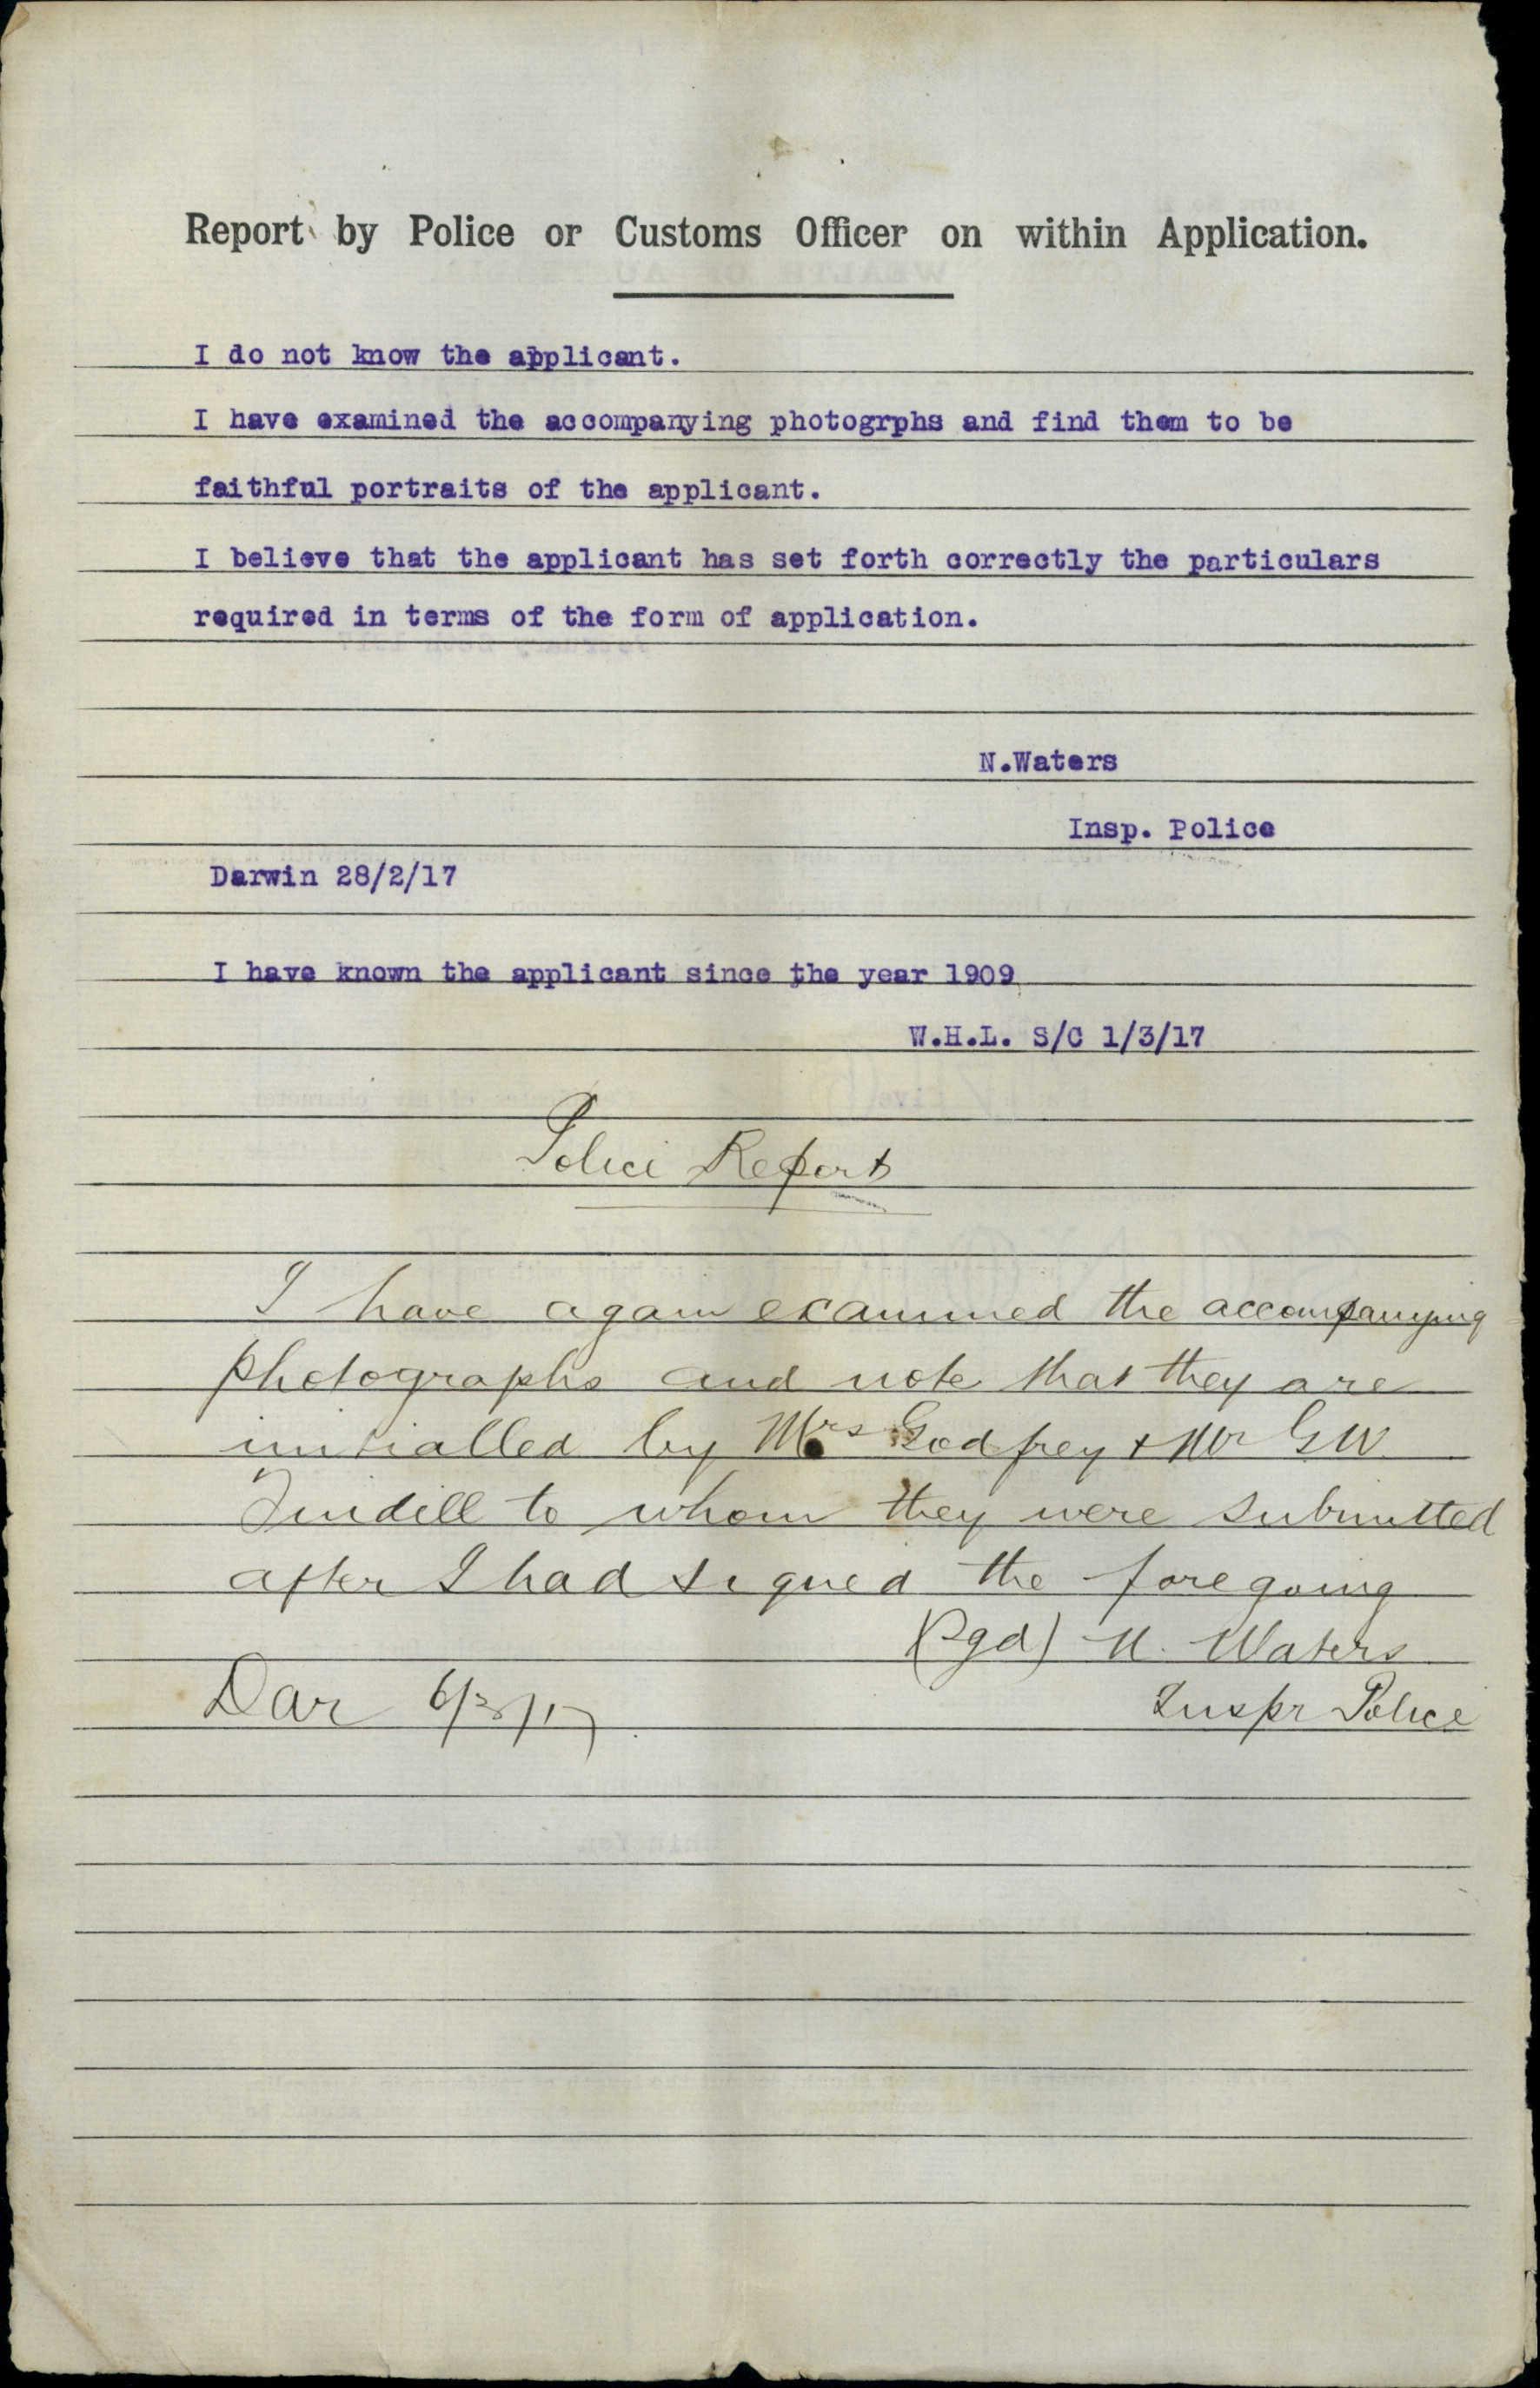 Report by Police or Customs Officer on within Application.
I do not know the applicant.
I have examined the accompanying photogrphs and find them to be
faithful portraits of the applicant.
I believe that the applicant has set forth correctly the particulars
required in terms of the form of application.
N.Waters
Insp. Police
Darwin 28/2/17
I have known the applicant since the year 1909
W.H.L. S/C 1/3/17
Police Report
I have again examined the accompanying
photographs and note that they are
initialled by Mrs Godfrey & Mr G W
Tindill to whom they were submitted
after I had signed the foregoing
(Sgd) N. Waters
Dar 6/3/17. Inspr Police